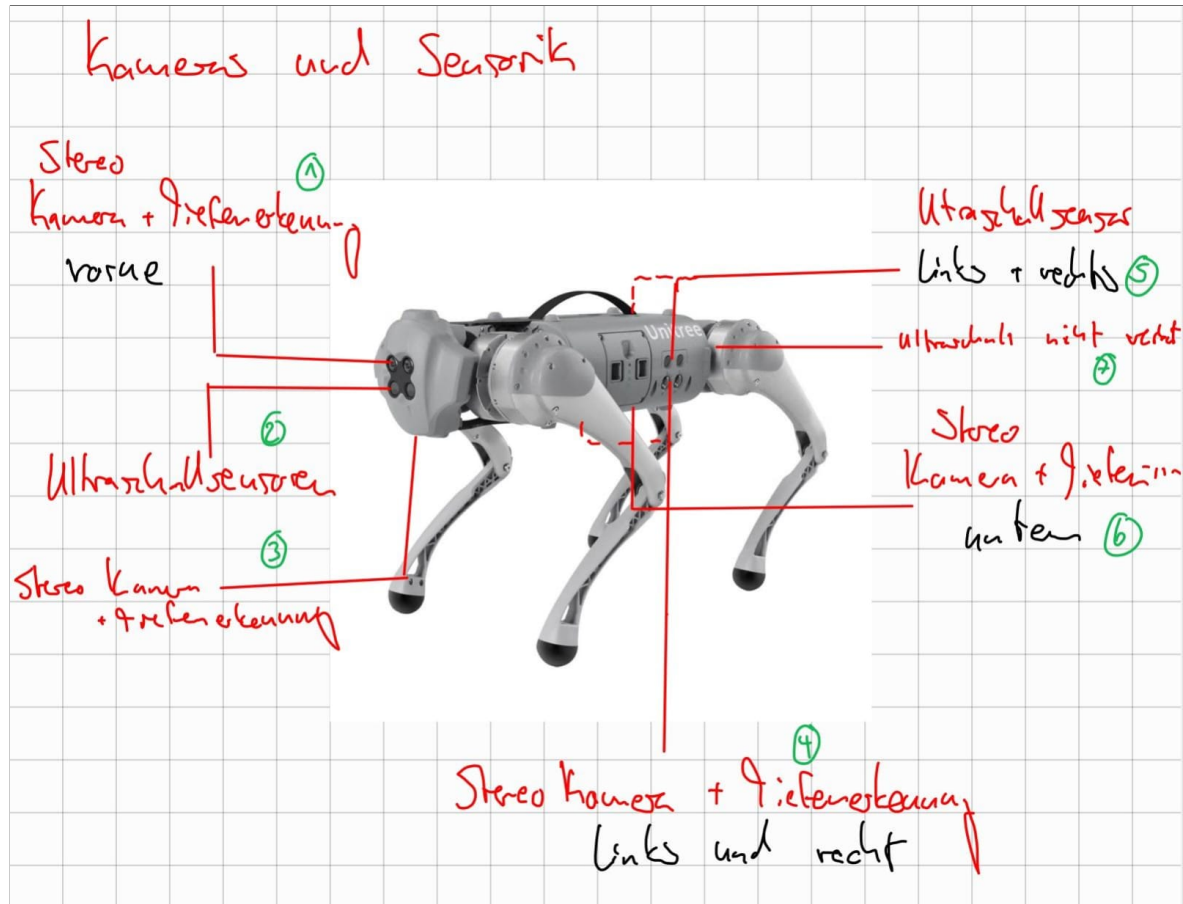 Kameras und Sensorik
Stereo
Kamera + Tiefenerkennung
vorne
1
2
Ultraschallsensoren
3
Stereo Kamera
+ Tiefenerkennung
Unitree
Utraschallsensor
links + rechts 5
Ultraschall nicht
7
Stereo
Kamera +
unten 6
4
Stereo Kamera + Tiefenerkennung
links und recht